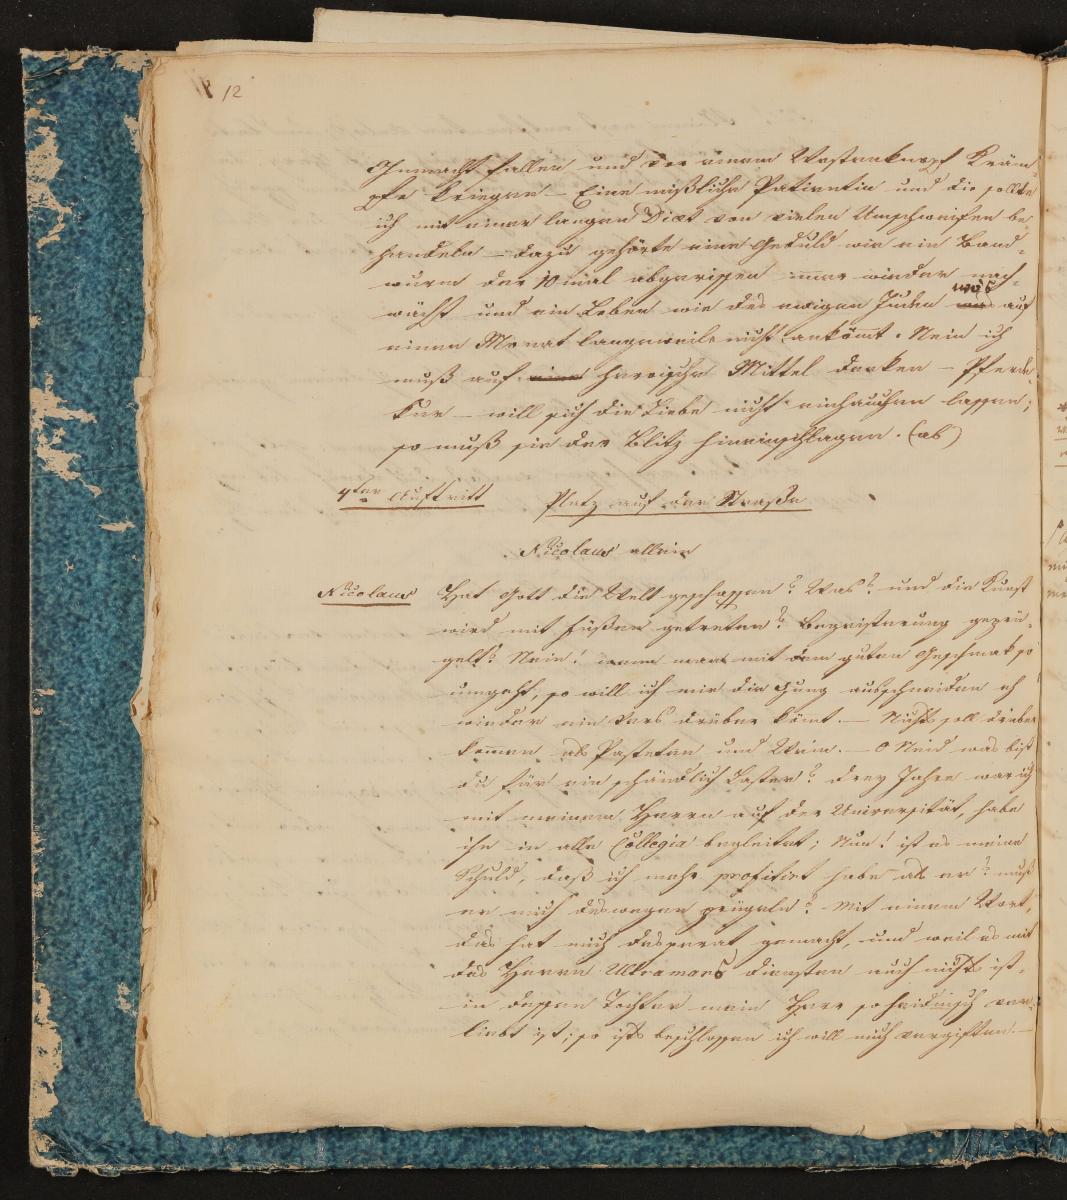 12
Ohnmacht fallen und vor einem Westenknopf Kräm-
pfe kriegen – Eine mißliche Patientin und die sollte
ich mit einer langen Diät von vielen Umschweifen be-
handeln – dazu gehörte eine Geduld wie ein Band-
wurm der 10 mal abgerissen immer wieder nach-
wächst und ein Leben wie des ewigen Juden auf
einen Monat langeweile nicht ankömt. Nein ich
muß auf heroische Mittel denken – Pferde-
kur – will sich die Liebe nicht einhauchen lassen;
so muß sie der Blitz hineinschlagen. (ab)
4ter Auftritt Platz auf der Straße
Nicolaus allein
Nicolaus Hat Gott die Welt geschaffen? Was? und die Kunst
wird mit Füßen getreten? Begeisterung geprü-
gelt? Nein! wenn man mit dem guten Geschmak so
umgeht, so will ich mir die Zung ausschneiden eh
wieder ein Vers drüber kömt. – Nichts soll drüber
kommen als Pasteten und Wein. – O Neid was bist
du für ein schändlich Laster? drey Jahre war ich
mit meinem Herrn auf der Universität, habe
ihn in alle Collegia begleitet; Nun! ist es meine
Schuld, daß ich mehr profitirt habe als er? muß
er mich deswegen prügeln? Mit einem Wort,
das hat mich desperat gemacht, und weil es mit
des Herrn Ultramars diensten auch nichts ist,
in dessen Tochter mein Herr so heidnisch ver-
liebt ist; so ists beschlossen ich will mich vergiften. –